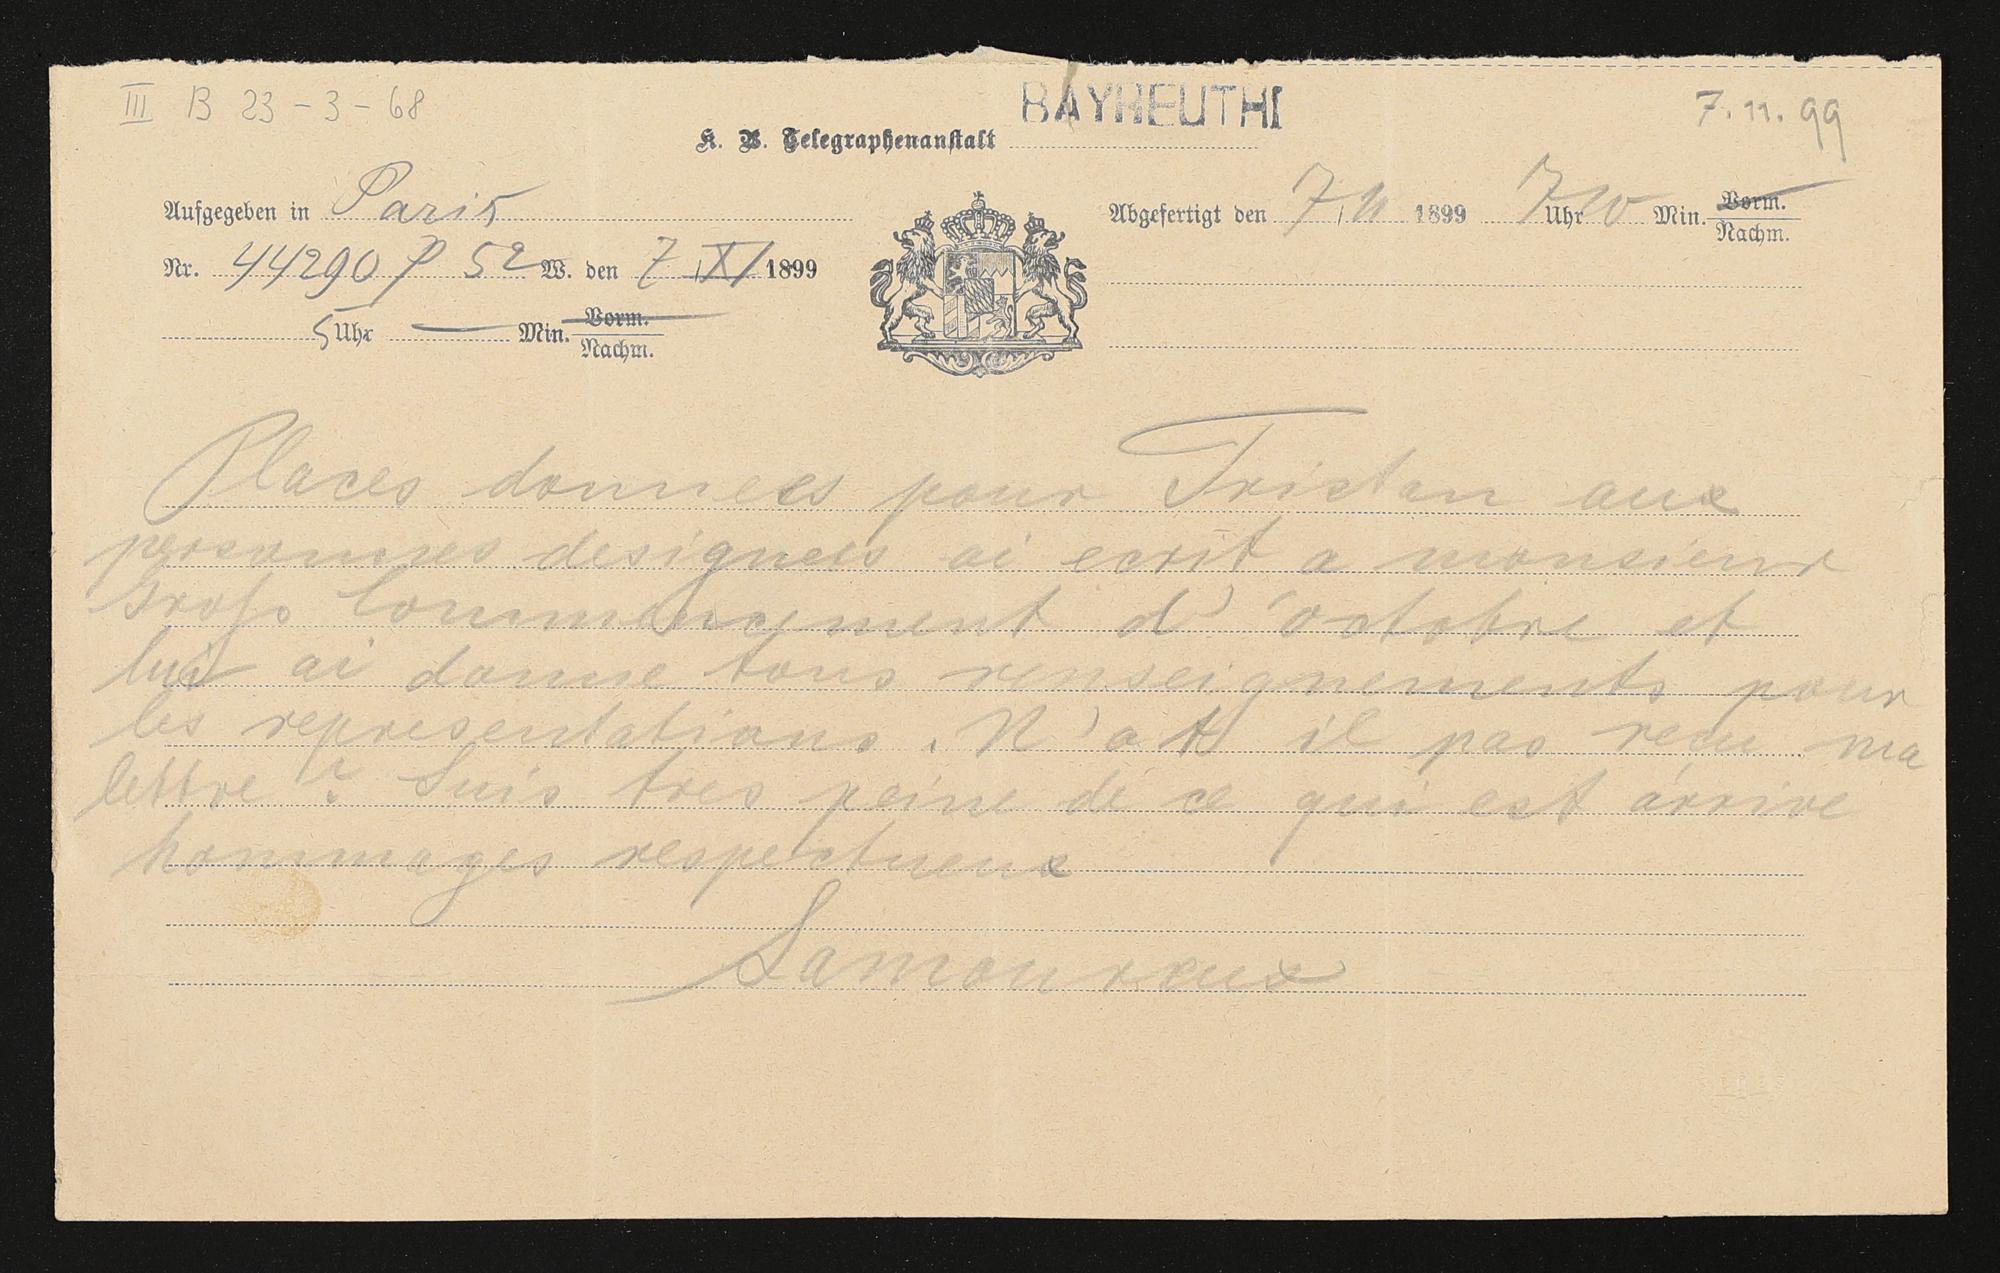 III B 23-3-68
BAYREUTH I
7.11.99
K. B. Telegraphenanstalt
Aufgegeben in Paris
Abgefertigt den 7/11 1899 7 Uhr 10 Min. Vorm. Nachm.
Nr. 44290 P 52 W. den 7/XI 1899
5 Uhr — Min. Vorm. Nachm.
Places donnees pour Tristan aux
personnes designees ai ecrit a monsieur
Gross Commencement d'octobre et
lui ai donne tous renseignements pour
les representations. N'a t il pas recu ma
lettre? Suis tres peine de ce qui est arrive
hommages respectueux
Lamoureux